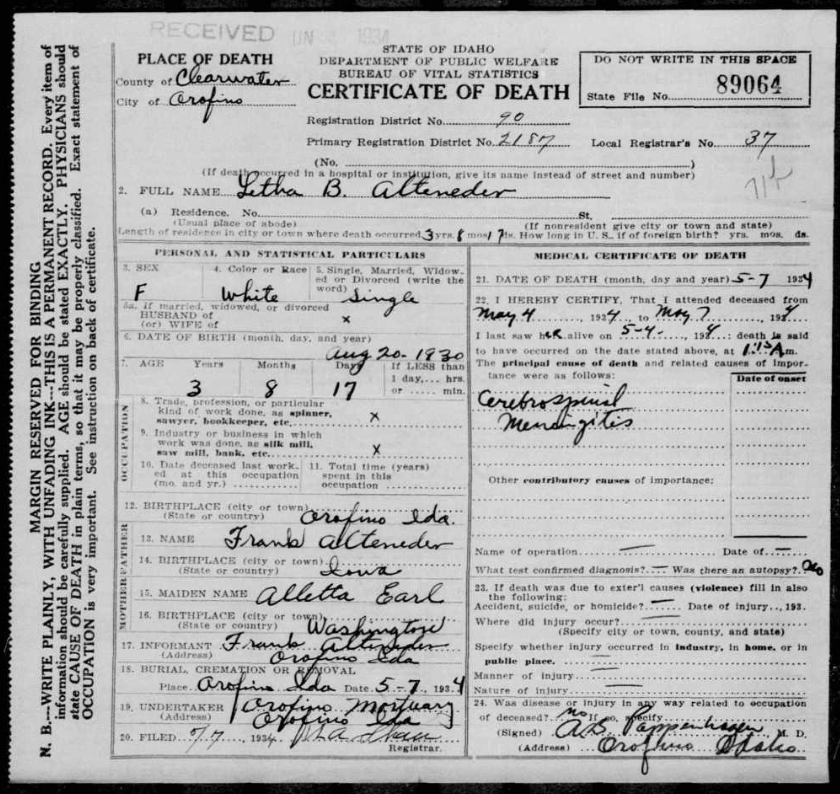 RECEIVED JUN 1934
PLACE OF DEATH
County of Clearwater
City of Orofino
STATE OF IDAHO
DEPARTMENT OF PUBLIC WELFARE
BUREAU OF VITAL STATISTICS
CERTIFICATE OF DEATH
DO NOT WRITE IN THIS SPACE
State File No. 89064
Registration District No. 90
Primary Registration District No. 2187 Local Registrar's No. 37
(No. )
(If death occurred in a hospital or institution, give its name instead of street and number)
2. FULL NAME Letha B. Alteneder
(a) Residence. No. St,
(Usual place of abode) (If nonresident give city or town and state)
Length of residence in city or town where death occurred 3 yrs. 8 mos 17 ds. How long in U. S., if of foreign birth? yrs. mos. ds.
PERSONAL AND STATISTICAL PARTICULARS
3. SEX 4. Color or Race 5. Single, Married, Widowed or Divorced (write the word)
F White Single
5a. If married, widowed, or divorced
HUSBAND of
(or) WIFE of x
6. DATE OF BIRTH (month, day, and year)
Aug 20 - 1930
7. AGE Years Months Days If LESS than
1 day, hrs.
3 8 17 or min.
OCCUPATION
8. Trade, profession, or particular
kind of work done, as spinner,
sawyer, bookkeeper, etc. x
9. Industry or business in which
work was done, as silk mill,
saw mill, bank, etc. x
10. Date deceased last worked at this occupation (mo. and yr.)
11. Total time (years) spent in this occupation
12. BIRTHPLACE (city or town)
(State or country) Orofino Ida.
FATHER
13. NAME Frank Alteneder
14. BIRTHPLACE (city or town)
(State or country) Iowa
MOTHER
15. MAIDEN NAME Alletta Earl
16. BIRTHPLACE (city or town)
(State or country) Washington
17. INFORMANT Frank Alteneder
(Address) Orofino Ida
18. BURIAL, CREMATION OR REMOVAL
Place Orofino Ida Date 5-7, 1934
19. UNDERTAKER Orofino Mortuary
(Address) Orofino Ida
20. FILED , 1934
Registrar.
MEDICAL CERTIFICATE OF DEATH
21. DATE OF DEATH (month, day and year) 5-7 1934
22. I HEREBY CERTIFY, That I attended deceased from
May 4, 1934, to May 7, 1934
I last saw her alive on 5-4-, 1934; death is said
to have occurred on the date stated above, at 1:15 A m.
The principal cause of death and related causes of importance were as follows:
Date of onset
Cerebrospinal
Meningitis
Other contributory causes of importance:
Name of operation — Date of —
What test confirmed diagnosis? — Was there an autopsy? No
23. If death was due to exter'l causes (violence) fill in also
the following:
Accident, suicide, or homicide? — Date of injury , 193.
Where did injury occur? —
(Specify city or town, county, and state)
Specify whether injury occurred in industry, in home, or in
public place. —
Manner of injury —
Nature of injury —
24. Was disease or injury in any way related to occupation
of deceased? No If so, specify
(Signed) Pappenhagen M. D.
(Address) Orofino Idaho
MARGIN RESERVED FOR BINDING
N. B.---WRITE PLAINLY, WITH UNFADING INK---THIS IS A PERMANENT RECORD. Every item of
information should be carefully supplied. AGE should be stated EXACTLY. PHYSICIANS should
state CAUSE OF DEATH in plain terms, so that it may be properly classified. Exact statement of
OCCUPATION is very important. See instruction on back of certificate.